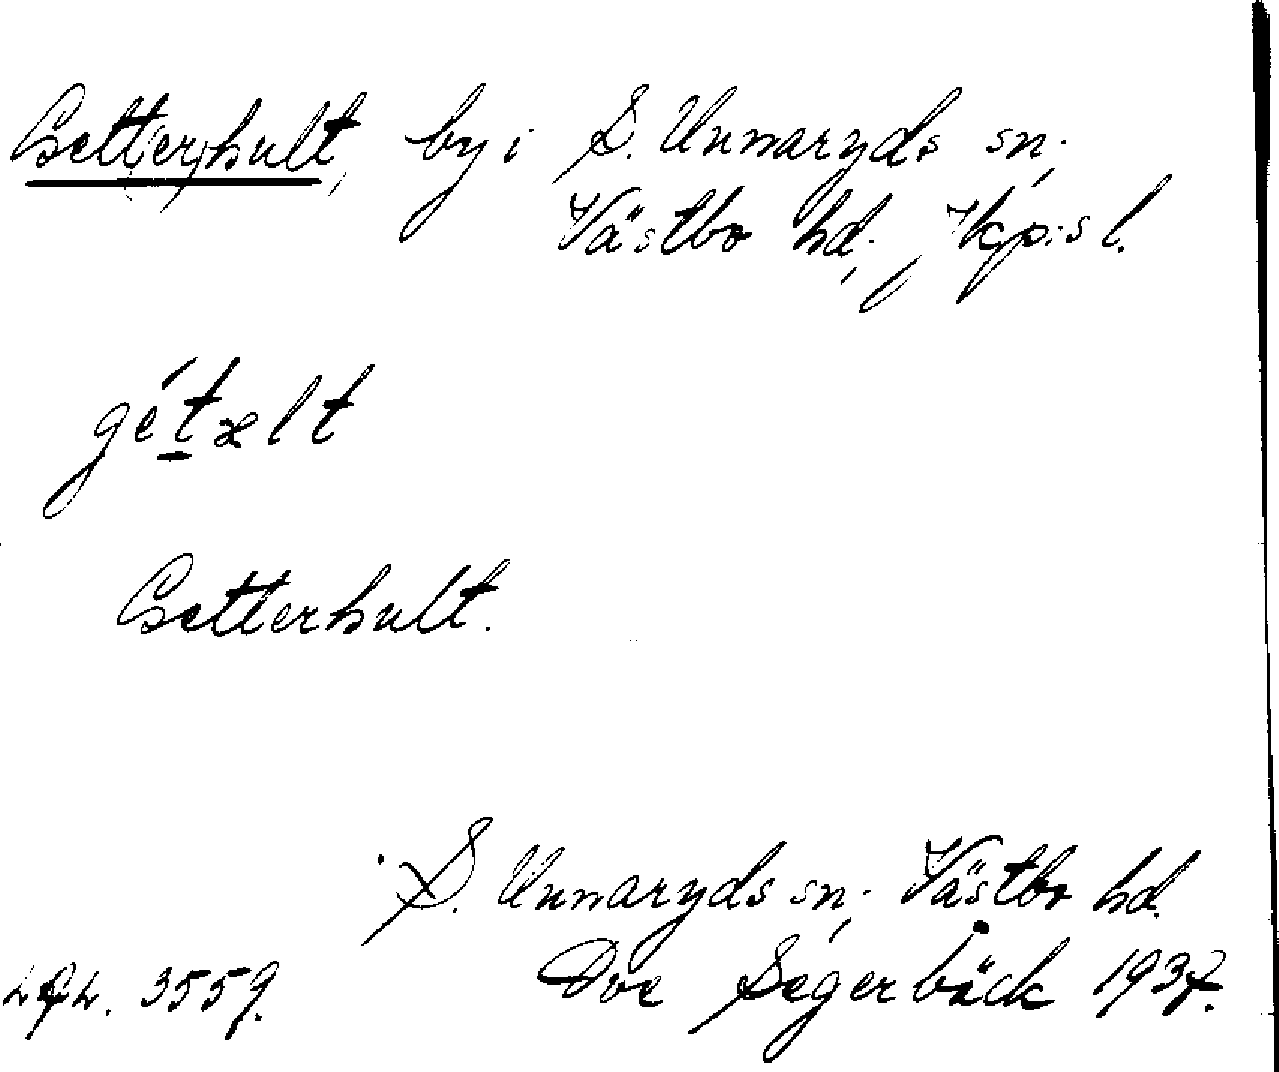 Gett(er)hult, by i S. Unnaryds sn;
Västbo hd, Jkp:s l.
gétælt
Getterhult.
S. Unnaryds sn; Västbo hd.
3559. Ove Segerbäck 1937.